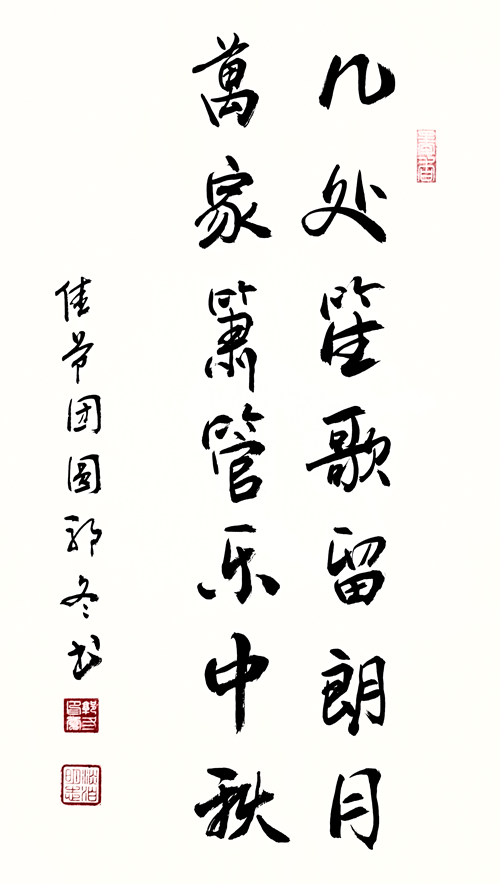 几处笙歌留朗月
萬家箫管乐中秋
佳节团圆郭冬书